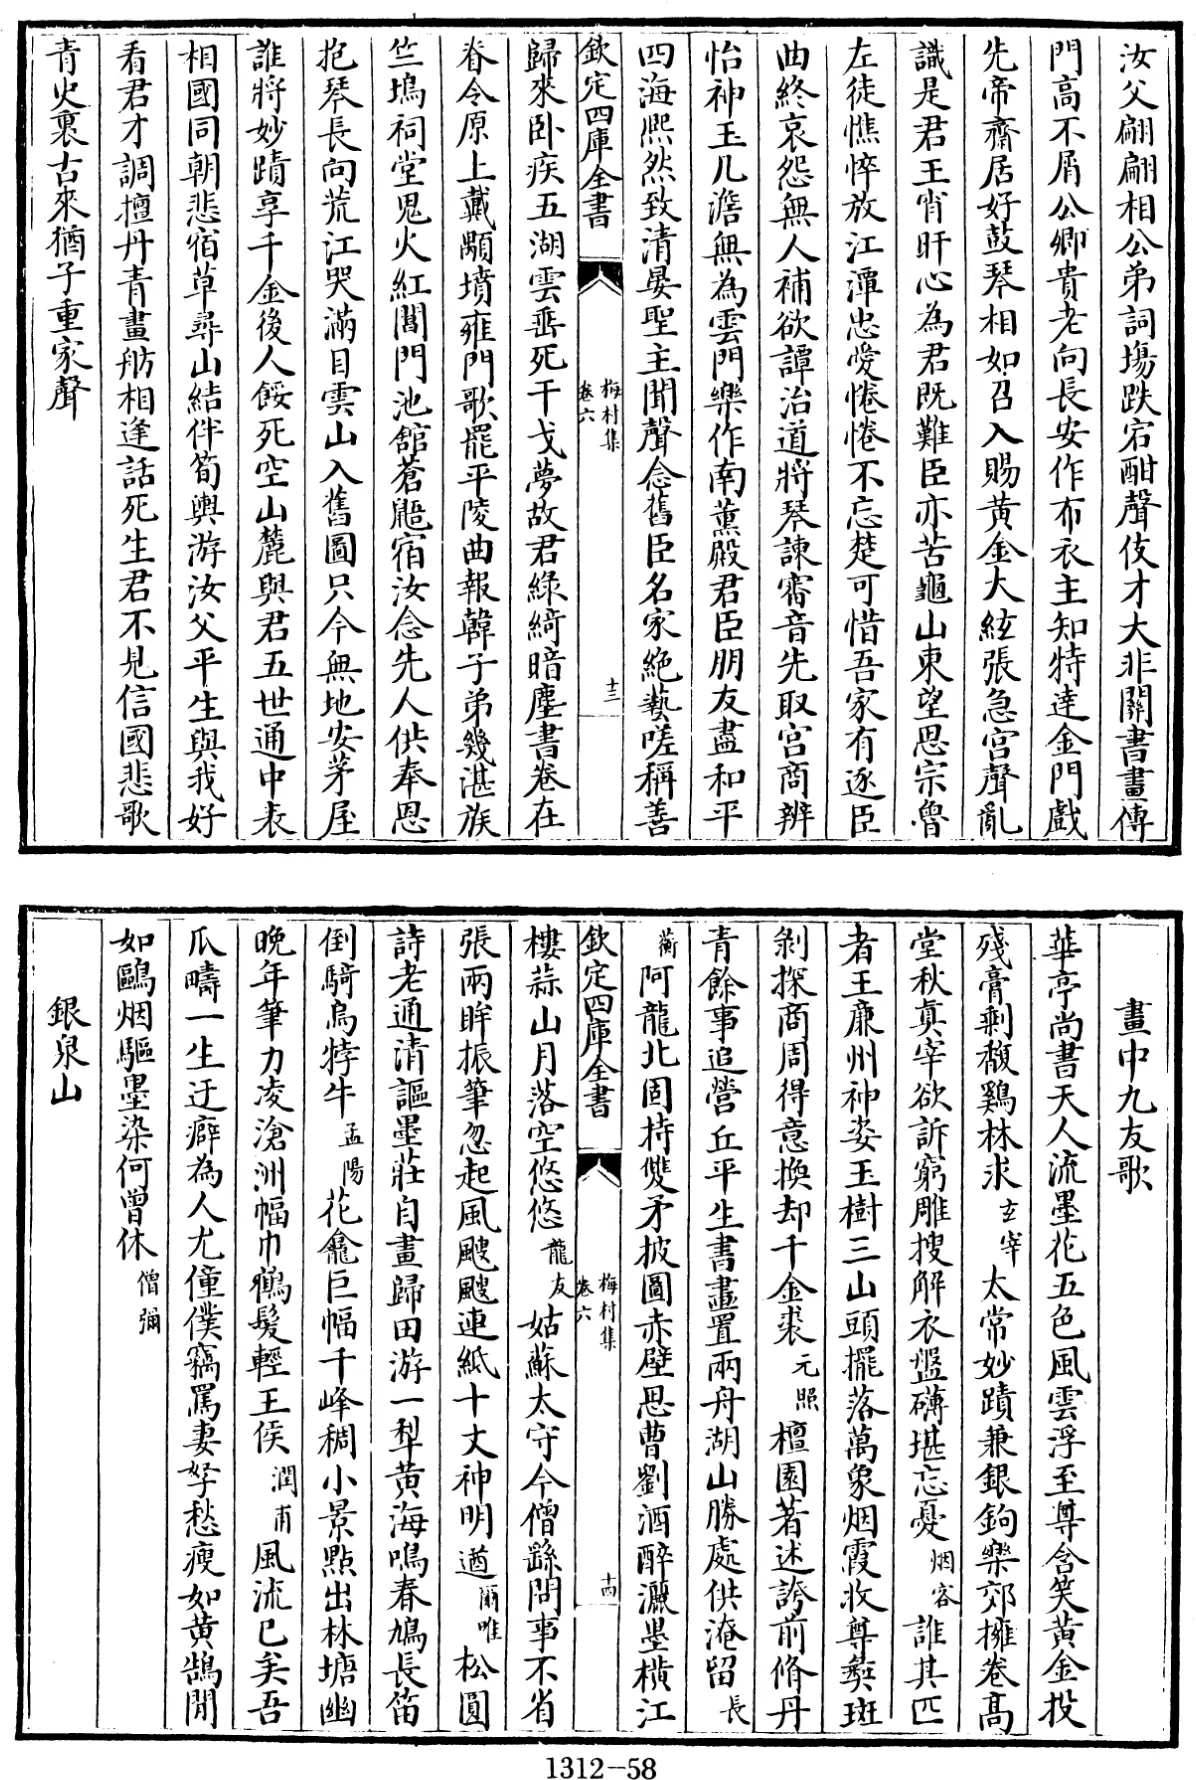 汝父翩翩相公弟詞塲跌宕酣聲伎才大非關書畫傳
門高不屑公卿貴老向長安作布衣主知特達金門戲
先帝齋居好鼓琴相如召入賜黄金大絃張急宫聲亂
識是君王宵旰心為君既難臣亦苦龜山東望思宗魯
左徒憔悴放江潭忠愛惓惓不忘楚可惜吾家有逐臣
曲終哀怨無人補欲譚治道將琴諌審音先取宫商辨
怡神玉几澹無為雲門樂作南薫殿君臣朋友盡和平
四海熈然致清晏聖主聞聲念舊臣名家絶藝嗟稱善
欽定四庫全書
梅村集
卷六
十三
歸來卧疾五湖雲垂死干戈夢故君綠綺暗塵書卷在
脊令原上戴顒墳雍門歌罷平陵曲報韓子弟幾湛族
竺塢祠堂鬼火紅閶門池館蒼鼯宿汝念先人供奉恩
抱琴長向荒江哭滿目雲山入舊圖只今無地安茅屋
誰將妙蹟享千金後人餒死空山麓與君五世通中表
相國同朝悲宿草尋山結伴筍輿游汝父平生與我好
看君才調擅丹青畫舫相逢話死生君不見信國悲歌
青火裏古來猶子重家聲
畫中九友歌
華亭尚書天人流墨花五色風雲浮至尊含笑黄金投
殘膏剩馥鷄林求 玄宰 太常妙蹟兼銀鉤樂郊擁卷髙
堂秋真宰欲訴窮雕搜解衣盤礴堪忘憂 烟客 誰其匹
者王廉州神姿玉樹三山頭擺落萬象烟霞收尊彞斑
剝探商周得意換却千金裘 元照 檀園著述誇前脩丹
青餘事追營丘平生書畫置兩舟湖山勝處供淹留 長
蘅 阿龍北固持雙矛披圖赤壁思曹劉酒醉灑墨横江
欽定四庫全書
梅村集
卷六
十四
樓蒜山月落空悠悠 龍友 姑蘇太守今僧繇問事不省
張兩眸振筆忽起風颼颼連紙十丈神明遒 爾唯 松圓
詩老通清謳墨莊自畫歸田游一犂黄海鳴春鳩長笛
倒騎烏牸牛 孟陽 花龕巨幅千峰稠小景點出林塘幽
晚年筆力凌滄洲幅巾鶴髪輕王侯 潤甫 風流已矣吾
瓜疇一生迂癖為人尤僮僕竊罵妻孥愁瘦如黄鵠閒
如鷗烟驅墨染何曾休 僧彌
銀泉山
1312-58